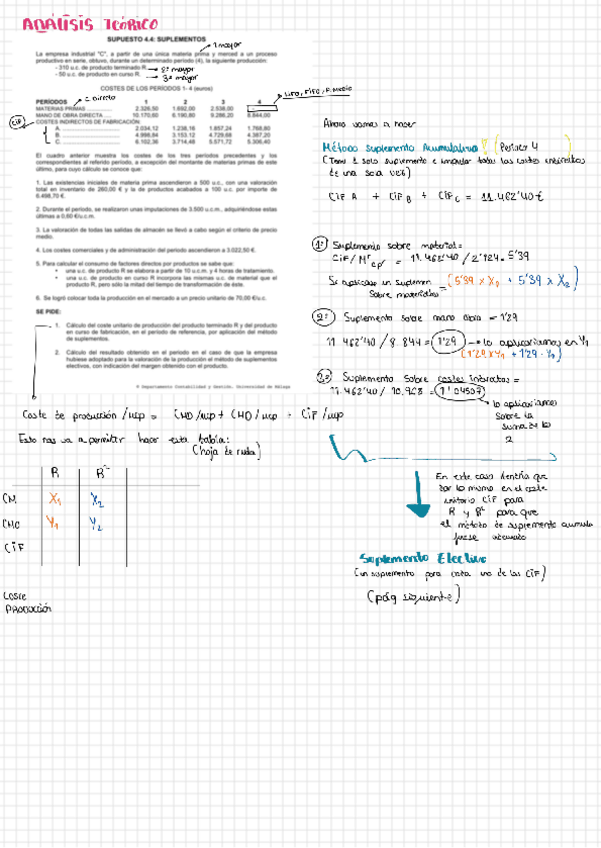 ANÁLISIS TEÓRICO
SUPUESTO 4.4: SUPLEMENTOS
1 mayor
La empresa industrial "C", a partir de una única materia prima y merced a un proceso
productivo en serie, obtuvo, durante un determinado período (4), la siguiente producción:
- 310 u.c. de producto terminado R. 2º mayor
- 50 u.c. de producto en curso R. 3º mayor
COSTES DE LOS PERÍODOS 1- 4 (euros)
C. Directo
LIFO, FIFO, P. Medio
PERÍODOS 1 2 3 4
MATERIAS PRIMAS 2.326,50 1.692,00 2.538,00
MANO DE OBRA DIRECTA 10.170,60 6.190,80 9.286,20 8.844,00
CIF
COSTES INDIRECTOS DE FABRICACIÓN:
A. 2.034,12 1.238,16 1.857,24 1.768,80
B. 4.998,84 3.153,12 4.729,68 4.387,20
C. 6.102,36 3.714,48 5.571,72 5.306,40
El cuadro anterior muestra los costes de los tres períodos precedentes y los
correspondientes al referido período, a excepción del montante de materias primas de este
último, para cuyo cálculo se conoce que:
1. Las existencias iniciales de materia prima ascendieron a 500 u.c., con una valoración
total en inventario de 260,00 € y la de productos acabados a 100 u.c. por importe de
6.498,70 €.
2. Durante el período, se realizaron unas imputaciones de 3.600 u.c.m., adquiriéndose estas
últimas a 0,60 €/u.c.m.
3. La valoración de todas las salidas de almacén se llevó a cabo según el criterio de precio
medio.
4. Los costes comerciales y de administración del período ascendieron a 3.022,50 €.
5. Para calcular el consumo de factores directos por productos se sabe que:
• una u.c. de producto R se elabora a partir de 10 u.c.m. y 4 horas de trabajo.
• una u.c. de producto en curso R incorpora las mismas u.c. de material que el
producto R, pero sólo la mitad del tiempo de transformación de éste.
6. Se logró colocar toda la producción en el mercado a un precio unitario de 70,00 €/u.c.
SE PIDE:
1. Cálculo del coste unitario de producción del producto terminado R y del producto
en curso de fabricación, en el período de referencia, por aplicación del método
de suplementos.
2. Cálculo del resultado obtenido en el período en el caso de que la empresa
hubiese adoptado para la valoración de la producción el método de suplementos
electivos, con indicación del margen obtenido con el producto.
© Departamento Contabilidad y Gestión. Universidad de Málaga
Coste de producción / ucp = CMD / ucp + CMO / ucp + CIF / ucp
Esto nos va a permitir hacer esta tabla:
(hoja de ruta)
R R'
CM X1 X2
CMO Y1 Y2
CIF
COSTE
PRODUCCIÓN
Ahora vamos a hacer
Método Suplemento Acumulativo (Periodo 4)
CIF A + CIF B + CIF C = 11.462'40 €
1º Suplemento sobre material =
CIF / = 11.462'40 / 2'124 = 5'39
(5'39 x X1 + 5'39 x X2)
sobre materiales
2º: Suplemento sobre mano obra = 1'29
11.462'40 / 8.844 = 1'29 → lo aplicaríamos en Y1
(1'29 x Y1 + 1'29 · Y2)
3º: Suplemento sobre costes directos =
11.462'40 / 10.968 = 1'04507
lo aplicaríamos
sobre la
suma de los
2
En este caso tendría que
dar lo mismo en el coste
unitario CIF para
R y R' para que
el método de suplemento acumula
fuese adecuado
Suplemento Electivo
(un suplemento para cada uno de los CIF)
(pág siguiente)